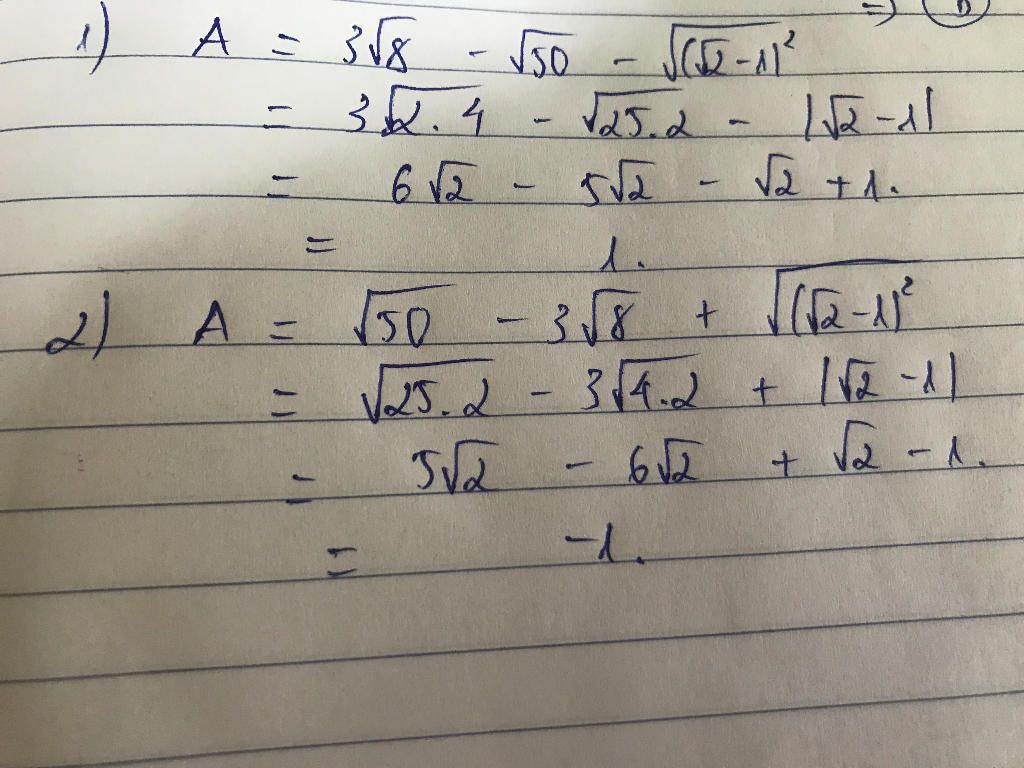 => B
1) A = 3√8 - √50 - √(√2-1)²
= 3√2.4 - √25.2 - |√2-1|
= 6√2 - 5√2 - √2 +1.
= 1.
2) A = √50 - 3√8 + √(√2-1)²
= √25.2 - 3√4.2 + |√2-1|
= 5√2 - 6√2 + √2 -1.
= -1.